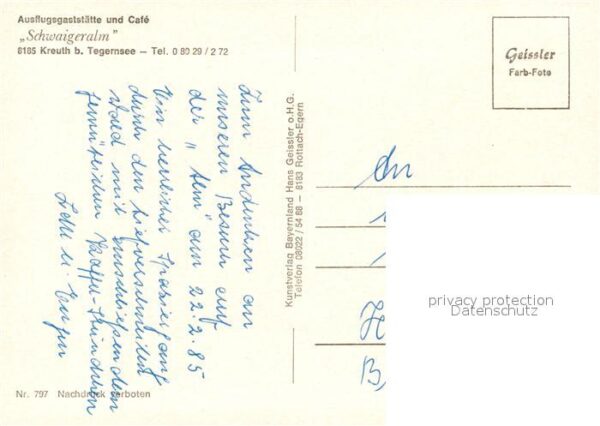 Ausflugsgaststätte und Café
„Schwaigeralm"
8185 Kreuth b. Tegernsee — Tel. 0 80 29 / 2 72
Zum Andenken an
unseren Besuch auf
der "Alm" am 22.2.85
Ein herrlicher Spaziergang
durch den tiefverschneiten
Wald mit anschließendem
gemütlichen Kaffee-Stündchen
u. Eugen
Nr. 797 Nachdruck verboten
Kunstverlag Bayernland Hans Geissler o.H.G.
Telefon 08022 / 54 88 — 8183 Rottach-Egern
Geissler
Farb-Foto
An
H
B
privacy protection
Datenschutz